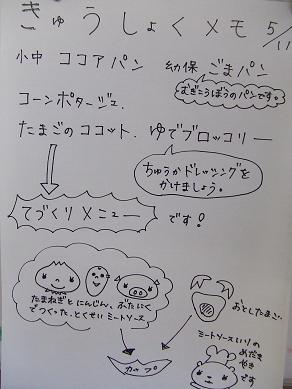 きゅうしょくメモ 5/11
小中 ココアパン 幼保 ごまパン
むぎこうぼうのパンです。
コーンポタージュ、
たまごのココット、ゆでブロッコリー
ちゅうかドレッシングを
かけましょう。
てづくりメニュー です!
たまねぎとにんじん、ぶたにく
でつくった、とくせいミートソース。
おとしたまご。
カップ
ミートソースいりの
めだまやき
です